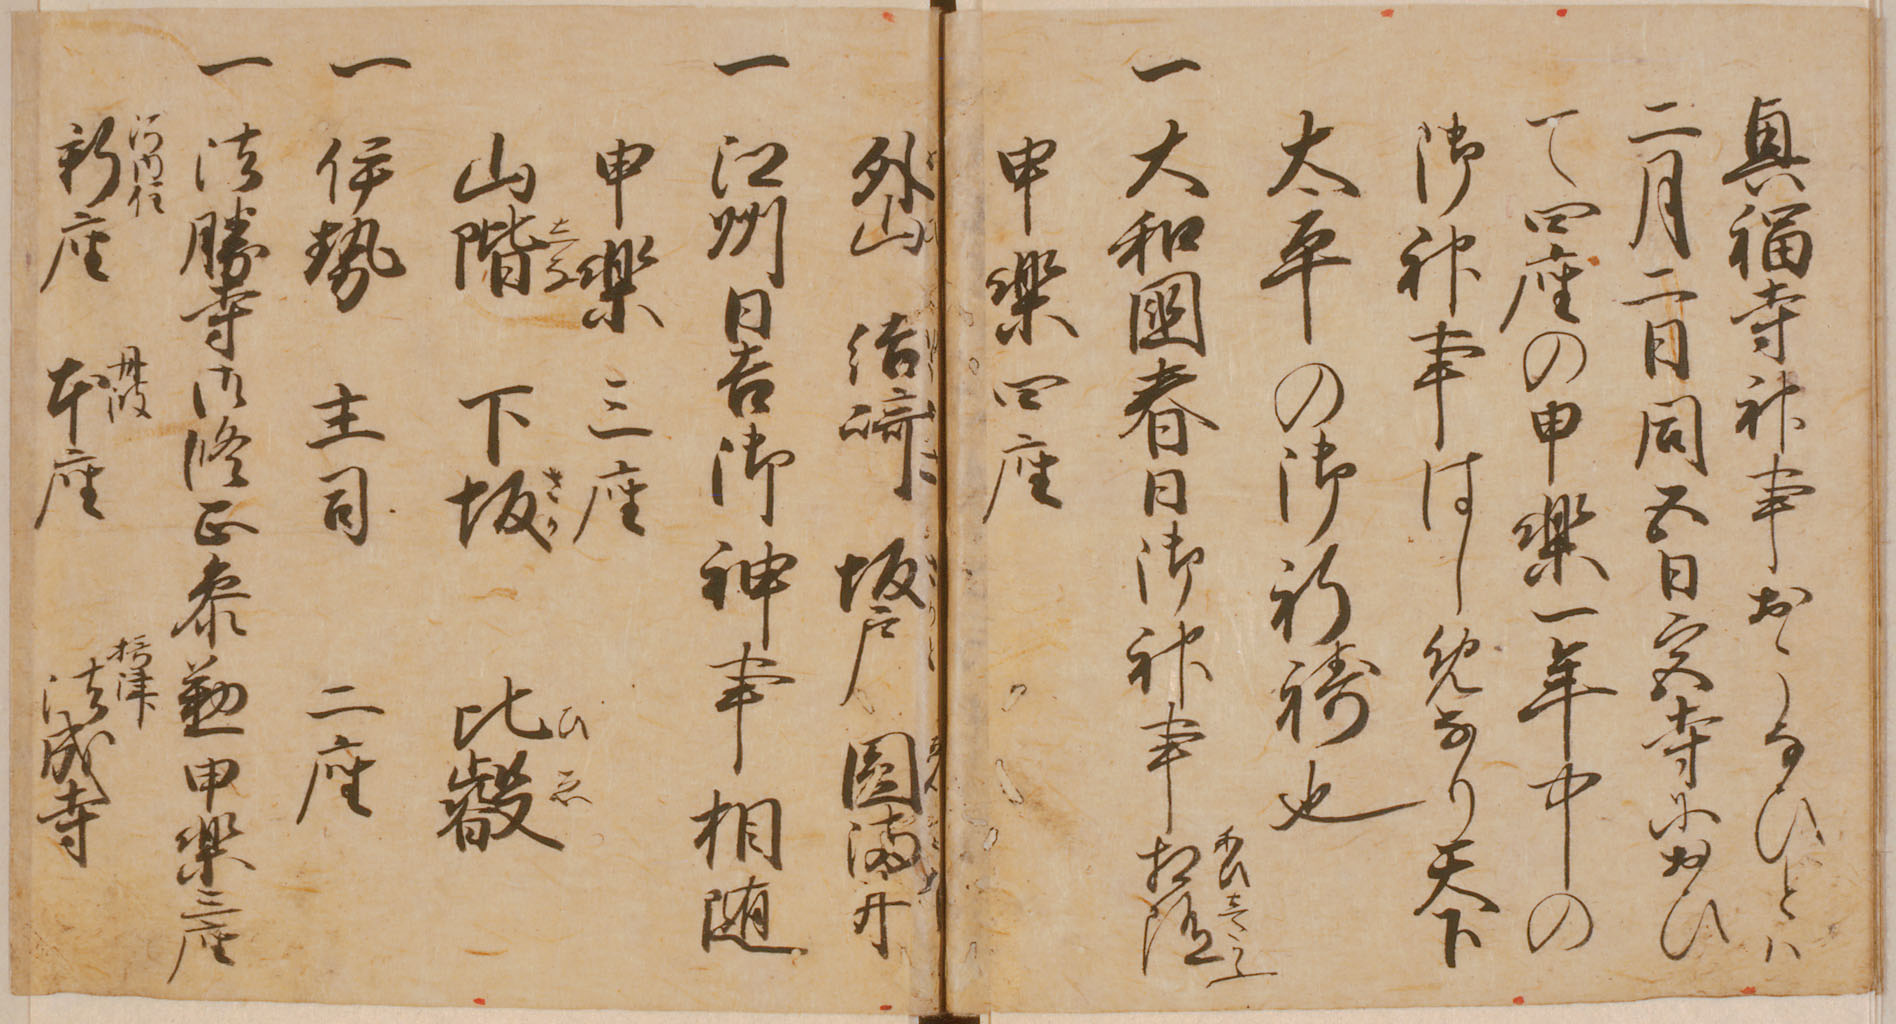 興福寺神事おこなひとハ
二月二日同五日宮寺におひ
て四座の申樂一年中の
御神事はしめなり天下
太平の御祈祷也
一 大和國春日御神事相随
申樂四座
外山 結崎 坂戸 圓満井
一 江州日吉御神事相随
申樂三座
山階 下坂 比叡
しな さか ひゑ
一 伊勢 主司 二座
一 法勝寺御修正参勤申樂三座
河内住 丹波 摂津
新座 本座 法成寺